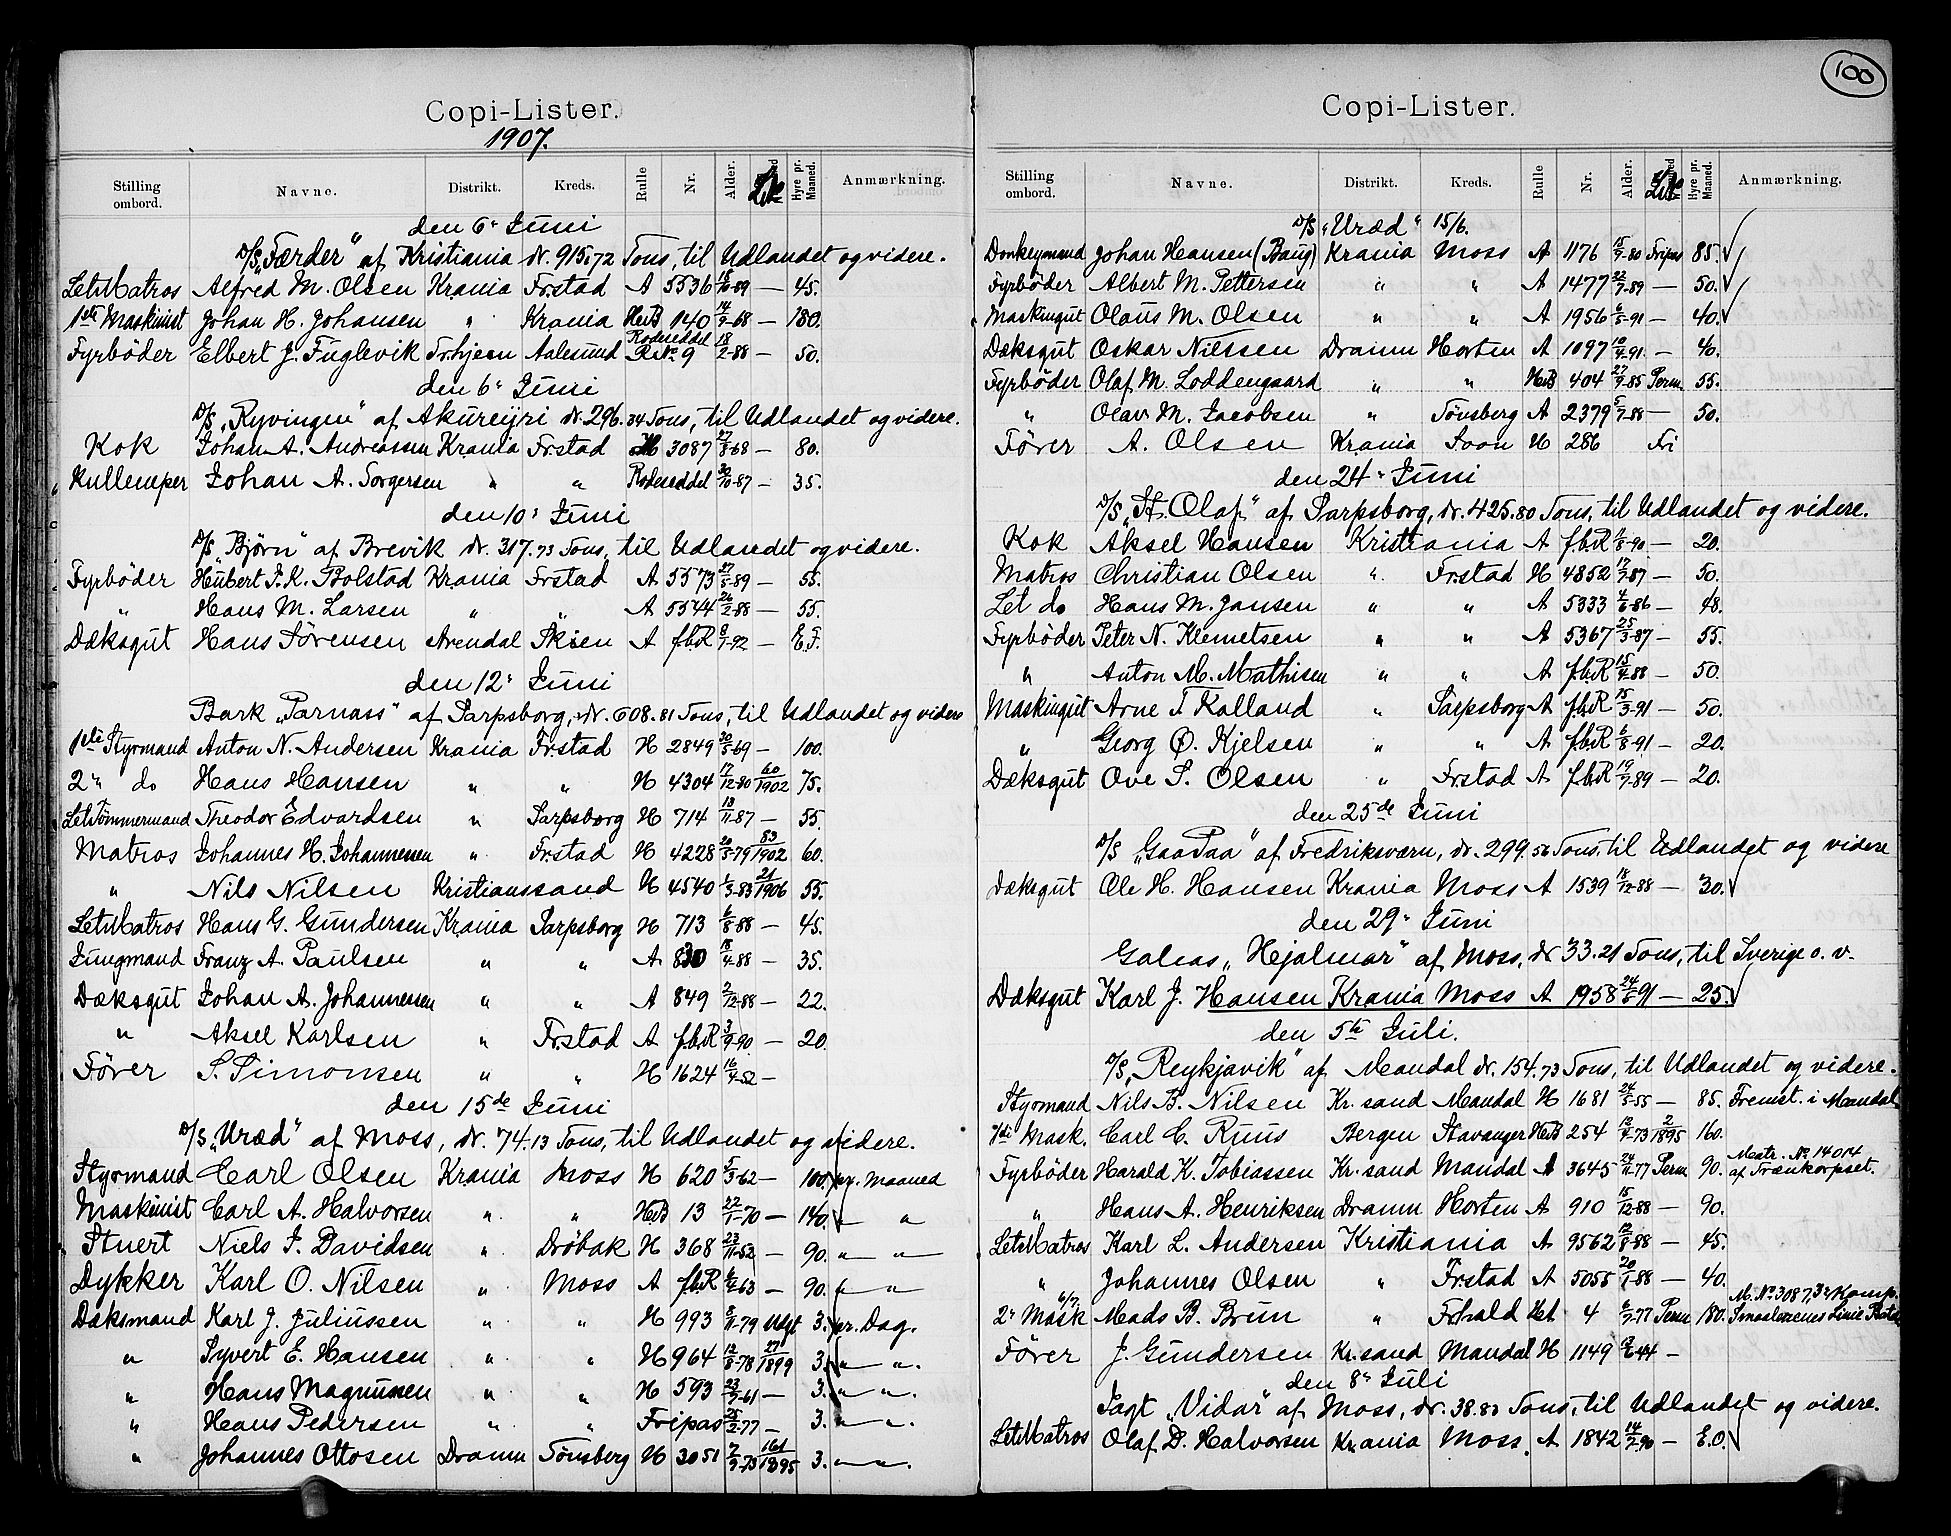 Copi-Lister.
1907.
Stilling ombord. Navne. Distrikt. Kreds. Rulle Nr. Alder. Hyre pr. Maaned. Anmærkning.
den 6" Juni
D/S „Færder" af Kristiania dr. 915.72 Tons, til Udlandet og videre.
LetMatros Alfred M. Olsen Krania Fr.stad A 5536 15/10-89 — 45.
1ste Maskinist Johan H. Johansen " Krania HetB 140 14/9-68 — 180.
Fyrbøder Elbert J. Fuglevik Tr.hjem Aalesund Rodeseddel R.No. 9 18/2-88 — 50.
den 6" Juni
D/S „Ryvingen" af Akureijri dr. 296.34 Tons, til Udlandet og videre.
Kok Johan A. Andreassen Krania Fr.stad H 3087 27/8-68 — 80.
Kullemper Johan A. Torgersen " " Rodeseddel 30/10-87 — 35.
den 10" Juni
D/S „Bjørn" af Brevik dr. 317.73 Tons, til Udlandet og videre.
Fyrbøder Hubert J. K. Bolstad Krania Fr.stad A 5573 27/5-89 — 55.
" Hans M. Larsen " " A 5544 26/2-88 — 55.
Dæksgut Hans Sørensen Arendal Skien A f.b.R 8/7-92 — E.F.
den 12" Juni
Bark „Parnass" af Sarpsborg, dr. 608.81 Tons, til Udlandet og videre
1ste Styrmand Anton N. Andersen Krania Fr.stad H 2849 20/5-69 — 100.
2" do Hans Hansen " " H 4304 17/12-80 60/1902 75.
LetTømmermand Theodor Edvardsen " Sarpsborg H 714 13/11-87 — 55.
Matros Johannes H. Johannesen " Fr.stad H 4228 20/5-79 83/1902 60.
" Nils Nilsen Kristianssand H 4540 1/3-83 21/1906 55.
LetMatros Hans G. Gundersen Krania Sarpsborg H 713 6/8-88 — 45.
Jungmand Franz A. Paulsen " " A 830 18/4-88 — 35.
Dæksgut Johan A. Johannesen " " A 849 2/12-88 — 22.
" Aksel Karlsen " Fr.stad A f.b.R 3/9-90 — 20.
Fører S. Simonsen " " H 1624 16/4-52 —
den 15de Juni
D/S „Uræd" af Moss, dr. 74.13 Tons, til Udlandet og videre.
Styrmand Carl Olsen Krania Moss H 620 5/3-62 — 100. pr. Maaned
Maskinist Carl A. Halvorsen " " HetB 13 22/1-70 — 140. — " —
Stuert Niels J. Davidsen " Drøbak H 368 23/11-52 — 90. " "
Dykker Karl O. Nilsen " Moss A f.b.R 6/2-63 — 90. — " —
Dæksmand Karl J. Juliussen " " H 993 8/11-79 Ulgt 3. pr. Dag.
" Syvert E. Hansen " " H 964 12/8-78 27/1899 3. — " —
" Hans Magnussen " " H 593 23/7-61 — 3. — " —
" Hans Pedersen " " Fripas 25/2-77 — 3. — " —
" Johannes Ottosen Dramn Tønsberg H 3051 7/7-73 161/1895 3. — " —
100
Copi-Lister.
Stilling ombord. Navne. Distrikt. Kreds. Rulle Nr. Alder. Hyre pr. Maaned. Anmærkning.
D/S „Uræd" 15/6.
Donkeymand Johan Hansen (Baug) Krania Moss A 1176 15/9-80 Fripas 85.
Fyrbøder Albert M. Pettersen " " A 1477 22/7-89 — 50.
Maskingut Olaus M. Olsen " " A 1956 6/5-91 — 40.
Dæksgut Oskar Nilssen Dramn Horten A 1097 10/4-91 — 40.
Fyrbøder Olaf M. Loddengaard " " HetB 404 27/9-85 Perm. 55.
" Olav M. Jacobsen " Tønsberg A 2379 5/7-88 — 50.
Fører A. Olsen Krania Svon H 286 Fri
den 24" Juni
D/S „St. Olaf" af Sarpsborg, dr. 425.80 Tons, til Udlandet og videre.
Kok Aksel Hansen Kristiania A f.b.R 1/8-90 — 20.
Matros Christian Olsen " Fr.stad H 4852 17/7-87 — 50.
Let do Hans M. Jansen " " A 5333 4/6-86 — 48.
Fyrbøder Peter N. Klemetsen " " A 5367 25/3-87 — 55.
" Anton M. Mathisen " " A f.b.R 15/4-88 — 50.
Maskingut Arne T Kolland " Sarpsborg A f.b.R 15/3-91 — 50.
" Georg Ø. Kjelsen " " A f.b.R 6/8-91 — 20.
Dæksgut Ove S. Olsen " Fr.stad A f.b.R 19/7-89 — 20.
den 25de Juni
D/S „GaaPaa" af Fredriksværn, dr. 299.56 Tons, til Udlandet og videre
Dæksgut Ole H. Hansen Krania Moss A 1539 18/12-88 — 30.
den 29" Juni
Galeas „Hjalmar" af Moss, dr 33.21 Tons, til Sverige o. v.
Dæksgut Karl J. Hansen Krania Moss A 1958 24/5-91 — 25.
den 5te Juli.
D/S „Reykjavik" af Mandal dr. 154.73 Tons, til Udlandet og videre.
Styrmand Nils B. Nilsen Kr.sand Mandal H 1681 24/5-55 — 85. Fremst. i Mandal
1ste Mask. Carl C. Ruus Bergen Stavanger HetB 254 12/4-73 2/1895 160.
Fyrbøder Harald K. Tobiassen Kr.sand Mandal A 3645 24/11-77 Perm 90. Matr. No. 14014 af Trænkorpset.
" Hans A. Henriksen Dramn Horten A 910 15/12-88 — 90.
LetMatros Karl L. Andersen Kristiania A 9562 12/8-88 — 45.
" Johannes Olsen " Fr.stad A 5055 20/1-88 — 40.
2" Mask 6/7 Mads B. Brun " Fr.hald Het 4 6/7-77 Perm 180. M. No 3087, 3" Komp. Smaalenenes Linie Bat.
Fører J. Gundersen Kr.sand Mandal H 1149 9/6-44 —
den 8" Juli
Jagt „Vidar" af Moss, dr. 38.83 Tons, til Udlandet og videre.
LetMatros Olaf D. Halvorsen Krania Moss. A 1842 14/7-90 — E.O.